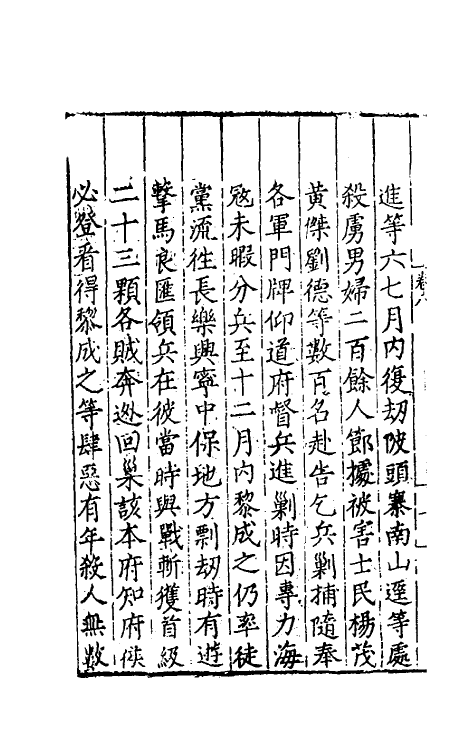 進等六七月內復刼陂頭寨南山逕等處
殺虜男婦二百餘人節據被害士民楊茂
黃傑劉德等數百名赴告乞兵剿捕隨奉
各軍門牌仰道府督兵進剿時因專力海
寇未暇分兵至十二月內黎成之仍率徒
黨流徃長樂興寧中保地方剽刼時有遊
擊馬良匯領兵在彼當時與戰斬獲首級
二十三顆各賊奔迯回巢該本府知府侯
必登看得黎成之等肆惡有年殺人無數
卷八